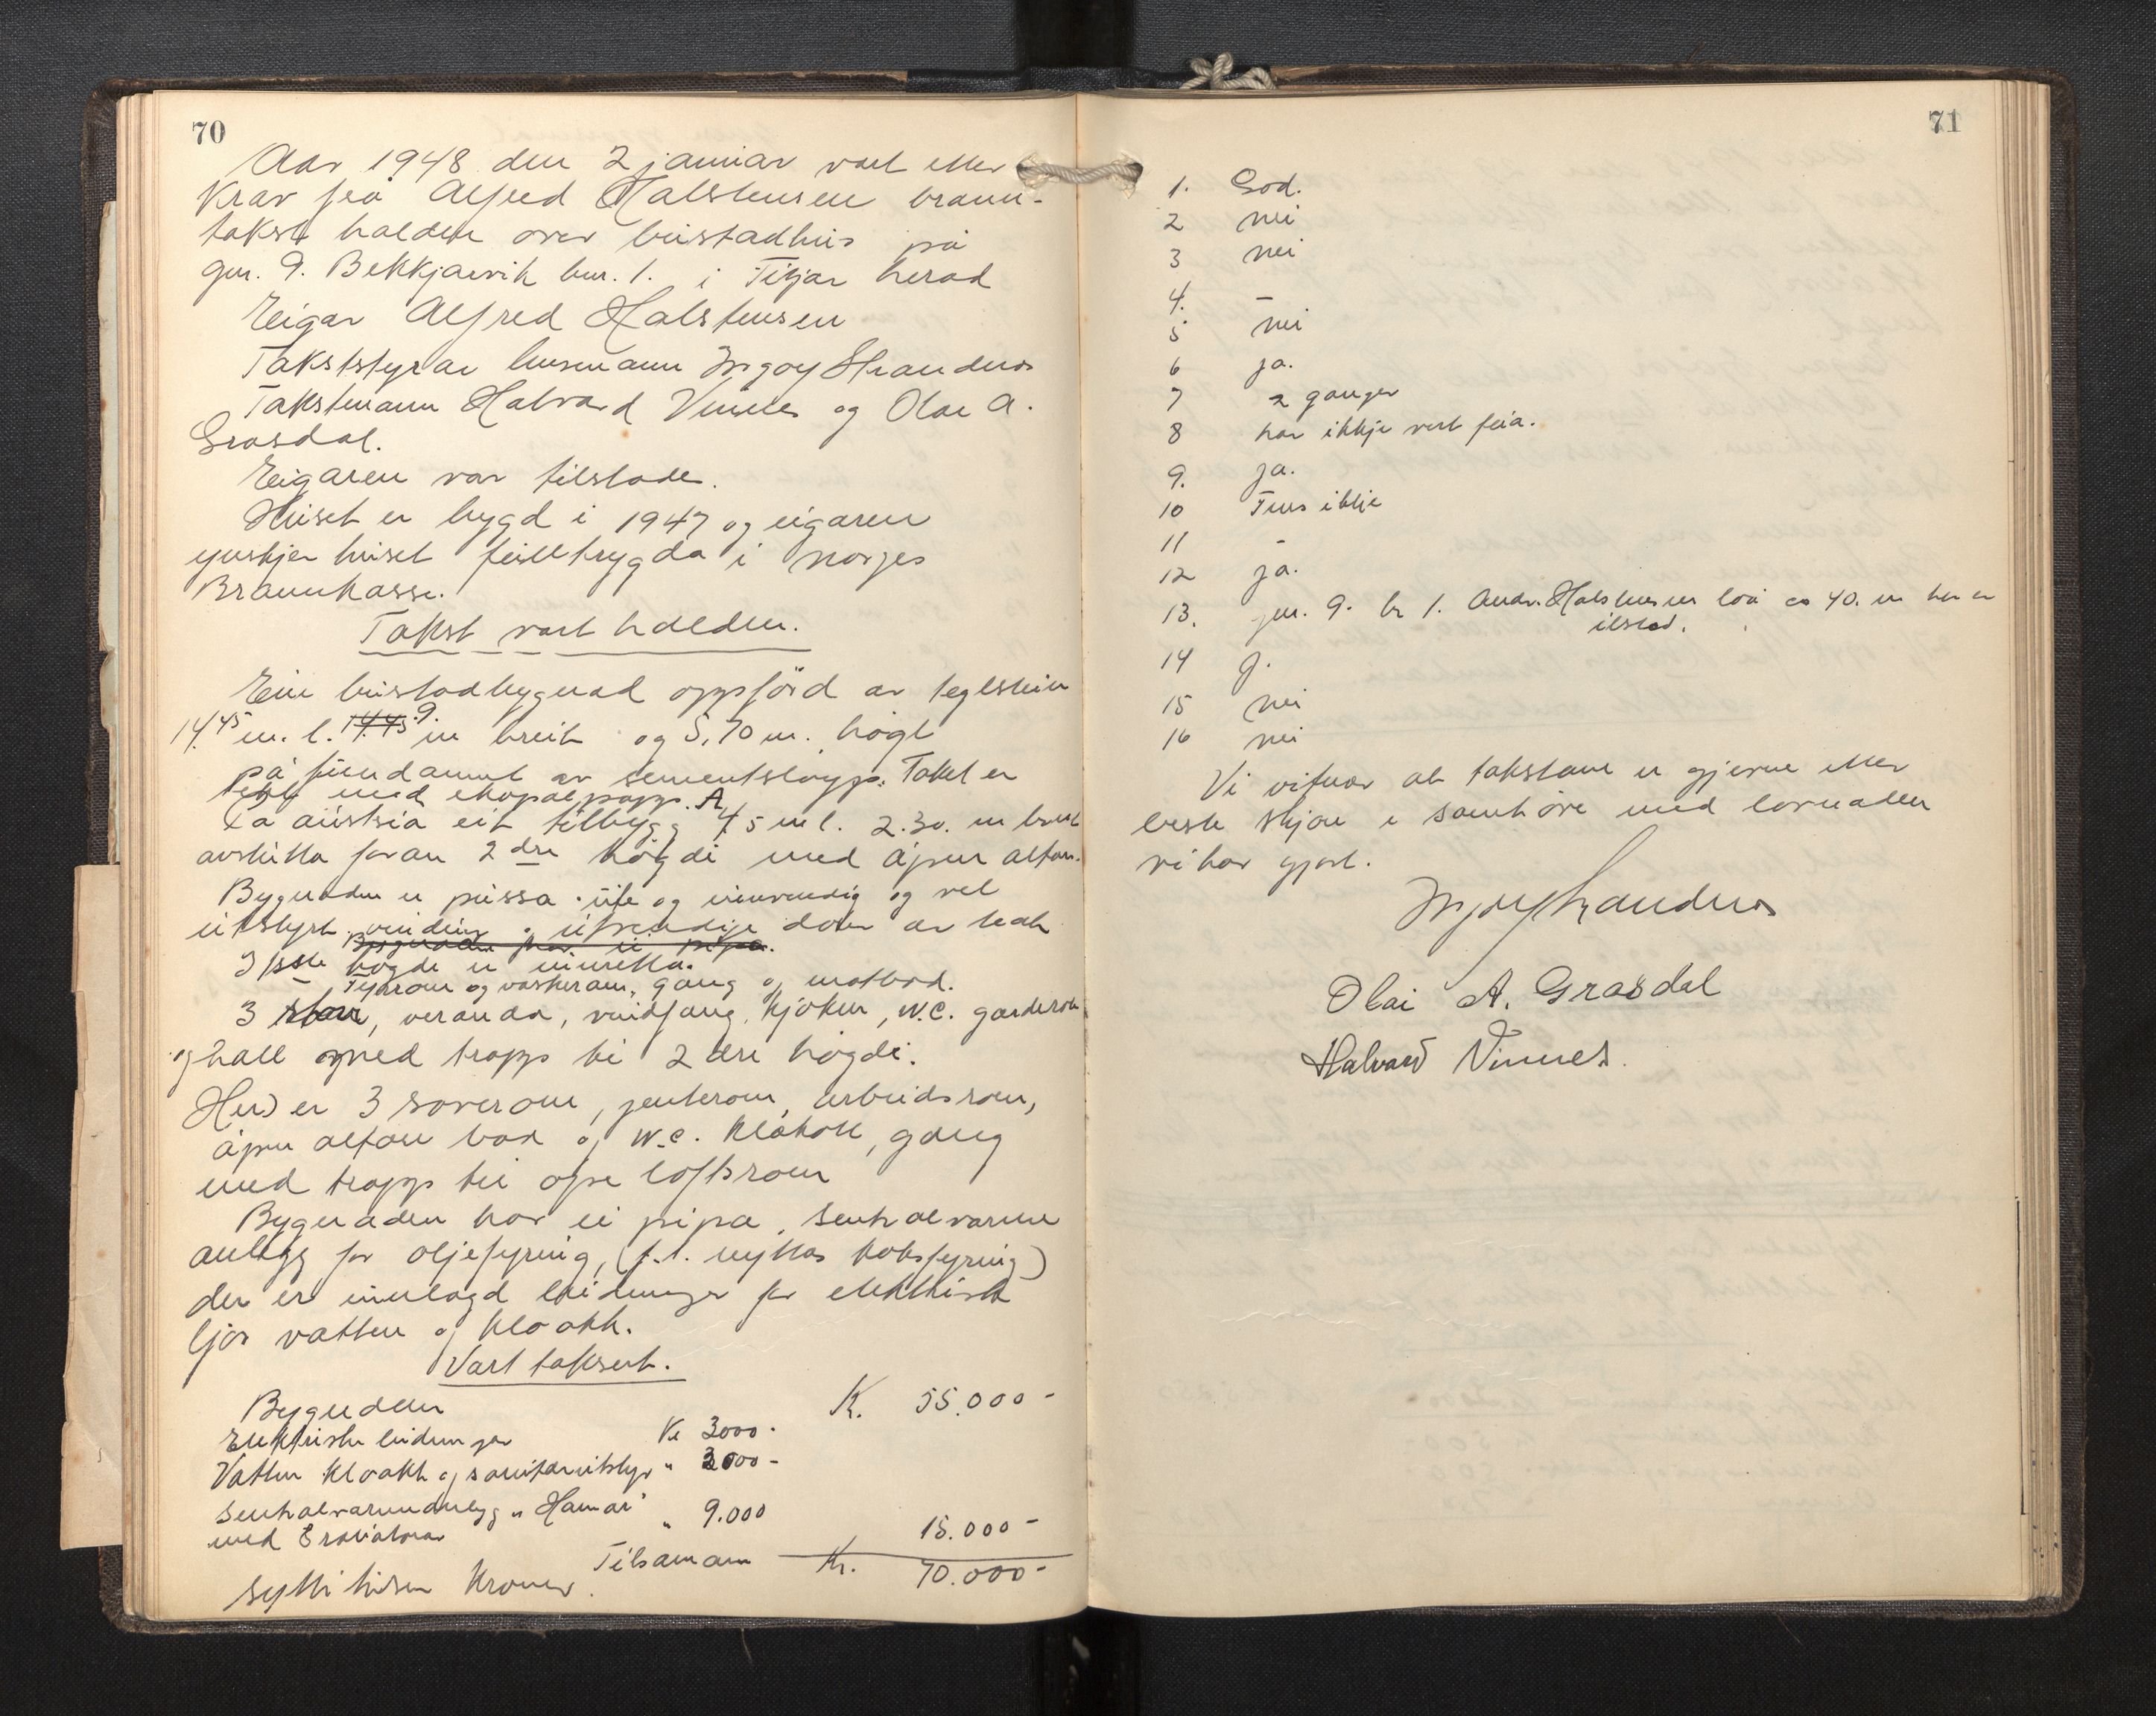 70
Aar 1948 den 2 januar vart etter
krav frå Alfred Halstensen brann-
takst halden over bustadhus på
gnr. 9. Bekkjarvik bnr. 1. i Fitjar herad
Eigar Alfred Halstensen
Takststyrar lensmann Ingolf Strandenes
Takstmann Halvard Vinnes og Olai A.
Grasdal.
Eigaren var tilstade.
Huset er bygd i 1947 og eigaren
ynskjer huset fullttrygda i Norges
Brannkasse.
Takst vart halden.
Ein bustadbygnad oppförd av teglstein
14.45 m. l. 14.45 9. m breit og 5,70 m. högt
på fundament av sementstöypp. Taket er
tekt med shapalpapp. A
På austsia eit tilbygg 4,5 m l. 2.30. m breit
avslutta foran 2 dre högdi med åpen altan.
Bygnaden er pussa ute og innvendig og vel
utstyrt. vinduer og utvendige dörer av teak
Bygnaden har ei pipa.
I 1ste högde er innretta.
Fyrrom og vaskerom, gang og matbod.
3 stover, veranda, vindfang, kjöken, W.C. garderobe
og hall med trapp til 2 dre högdi.
Her er 3 soverom, jenterom, arbeidsrom,
åpen altan bad og W.C. kleskott, gang
med trapp til öfre loftsrom
Bygnaden har ei pipa, sentralvarme
anlegg for oljefyring, (f.t. nyttas koksfyring)
der er innlagd leidninger for elektrisk
ljos vatten og kloakk.
Vart taksert.
Bygnaden Kr. 55.000 -
Elektriske leidningar Kr 3000.
Vatten kloakk og sanitærutstyr " 3000 -
Sentralvarmeanlegg "Hamar"
med Eraviatorar " 9.000 15.000 -
Tilsamann Kr. 70.000 -
Sytti tusen Kroner.
71
1. God.
2 nei
3 nei
4. -
5 nei
6 ja.
7 2 ganger
8 har ikkje vert feia.
9. ja.
10 Fins ikkje
11 -
12 ja.
13. gnr. 9. br 1. Andr. Halstensen löa ca 40. m her er
ilstad.
14 J.
15 nei
16 nei
Vi vitnar at takstane er gjerne etter
beste skjön i samhöve med lovnaden
vi har gjort.
Ingolf Strandenes
Olai A. Grasdal
Halvard Vinnes.